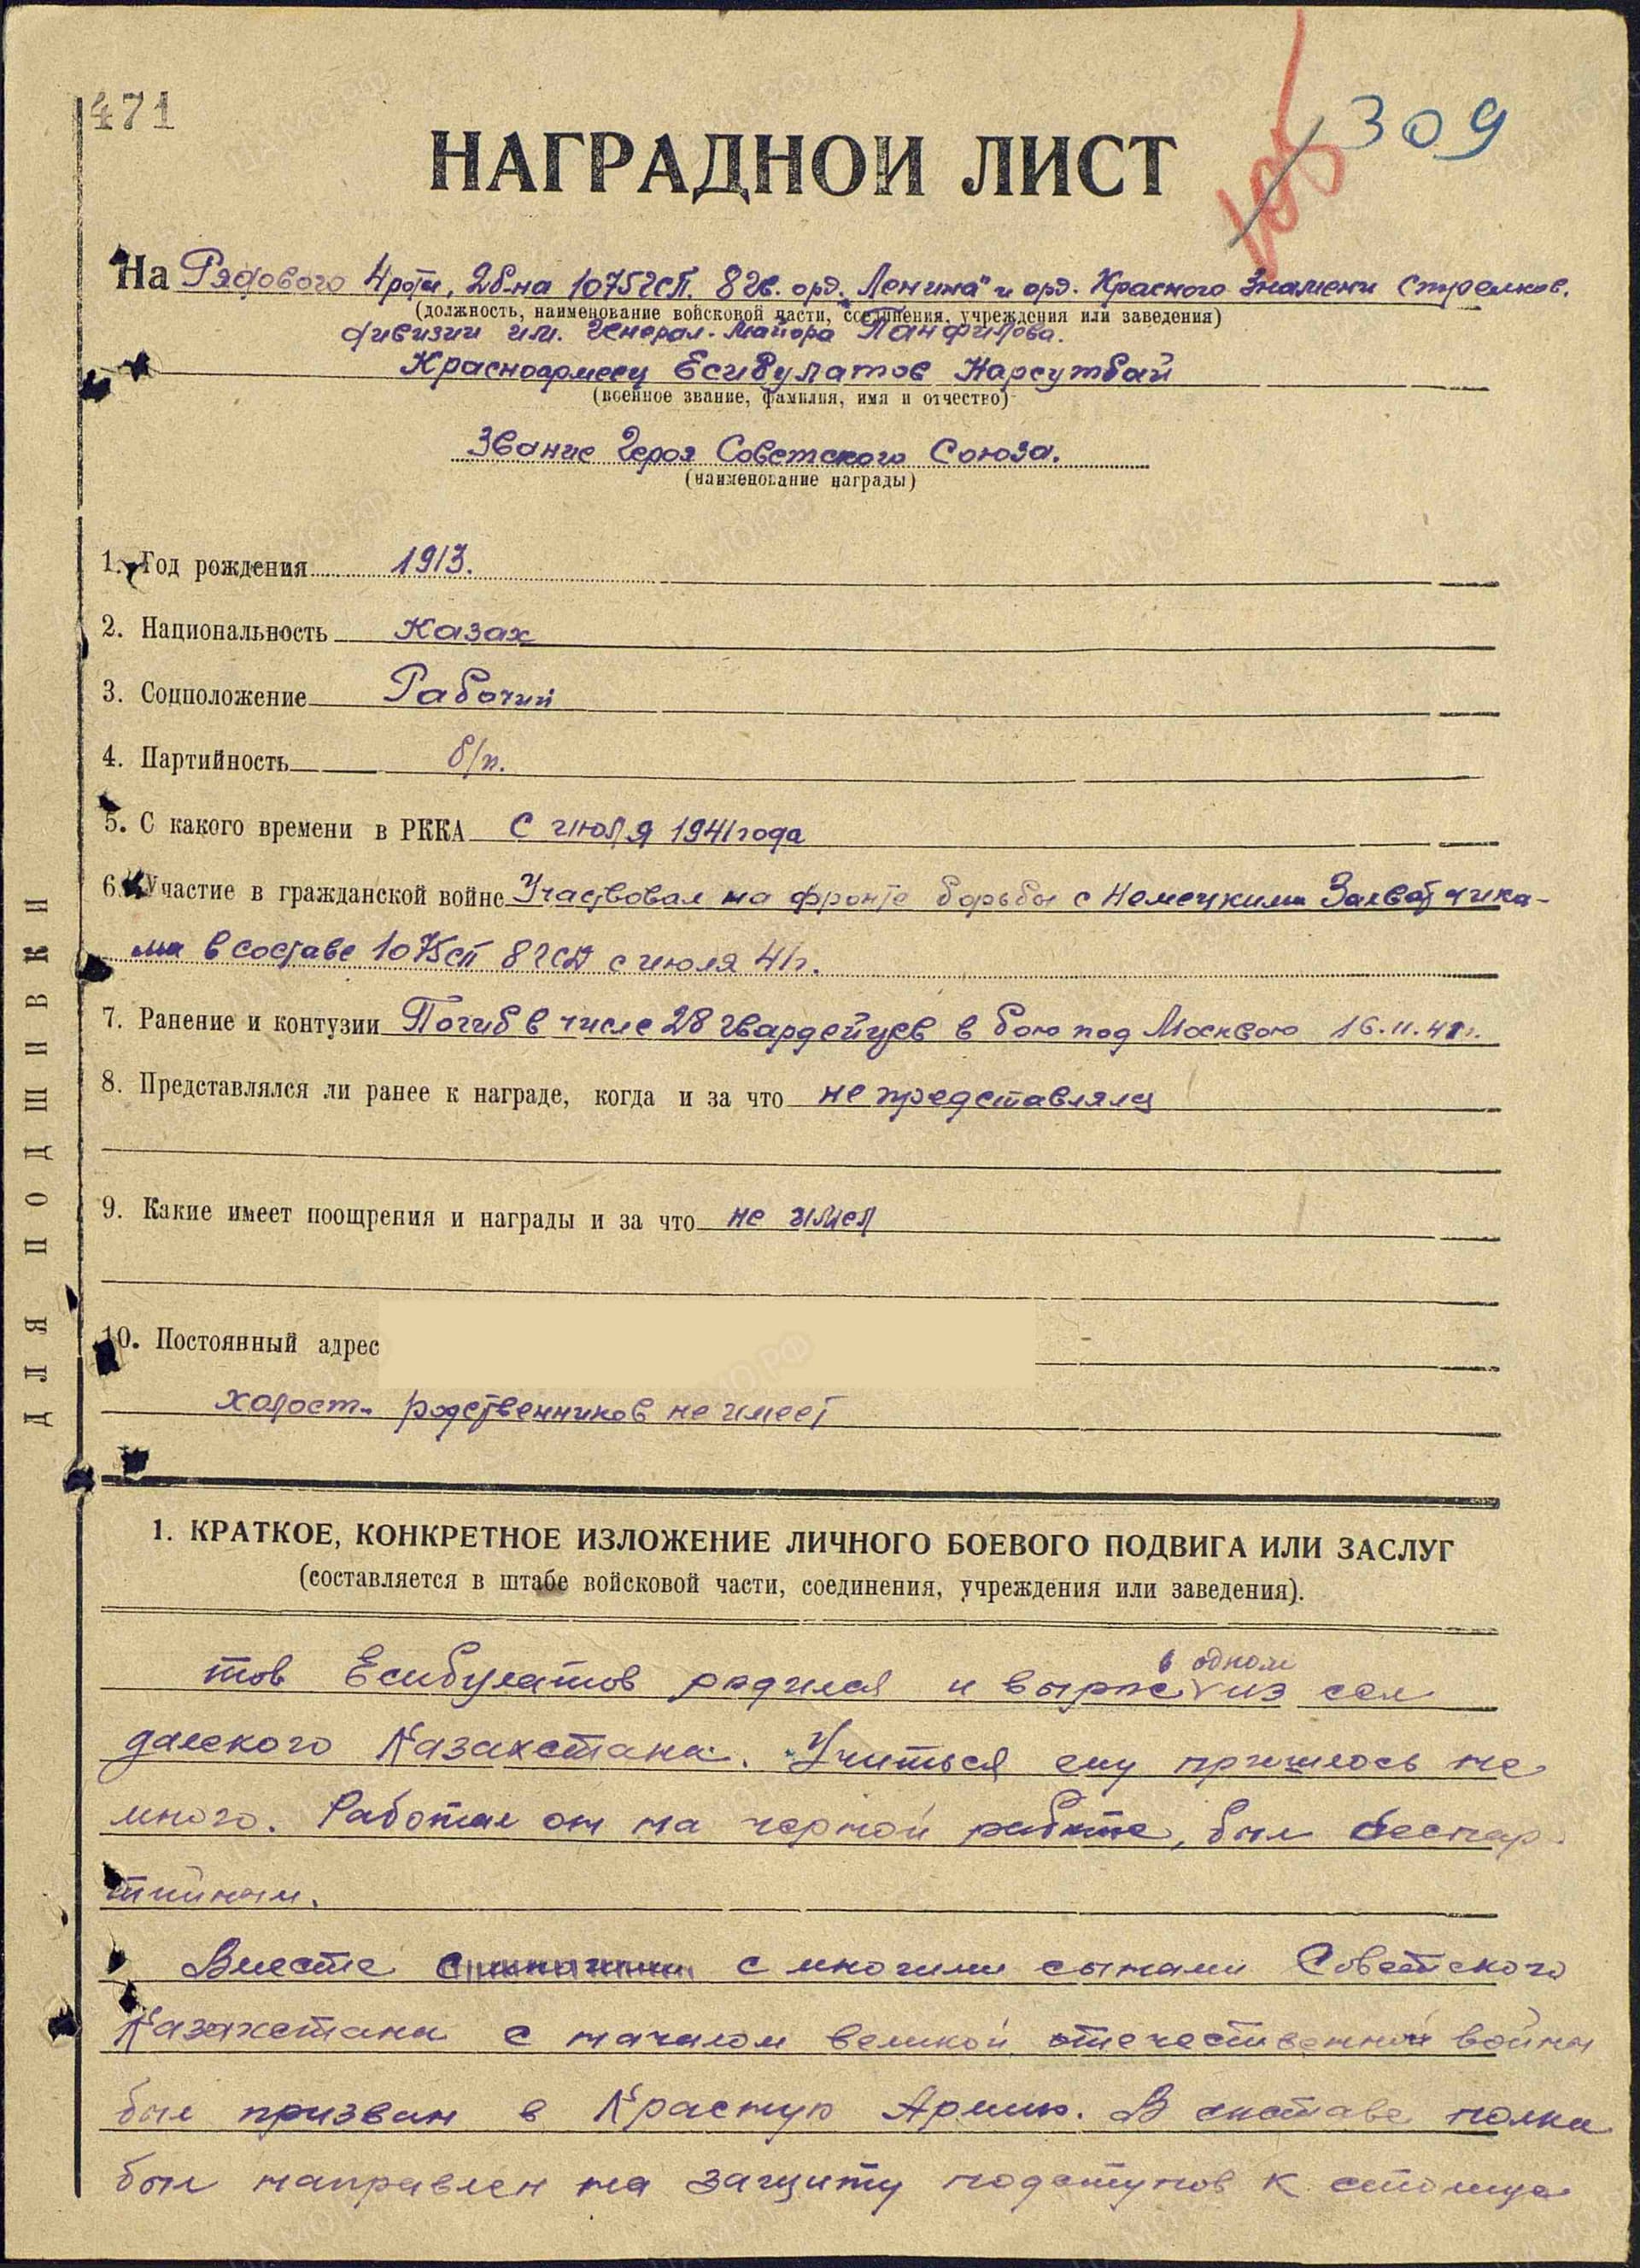 471
105 309
НАГРАДНОЙ ЛИСТ
На Рядового 4 роты, 2 б-на 1075 гсп. 8 гв. орд. „Ленина" и орд. Красного Знамени стрелков.
(должность, наименование войсковой части, соединения, учреждения или заведения)
дивизии им. Генерал-Майора Панфилова.
Красноармеец Есибулатов Нарсутбай
(военное звание, фамилия, имя и отчество)
Звание Героя Советского Союза.
(наименование награды)
1. Год рождения 1913.
2. Национальность Казах
3. Соцположение Рабочий
4. Партийность б/п.
5. С какого времени в РККА С июля 1941 года
6. Участие в гражданской войне Участвовал на фронте борьбы с Немецкими Захватчика-
ми в составе 1075 сп 8 гсд с июля 41 г.
7. Ранение и контузии Погиб в числе 28 гвардейцев в бою под Москвою 16.11.41 г.
8. Представлялся ли ранее к награде, когда и за что не представлялся
9. Какие имеет поощрения и награды и за что не имел
10. Постоянный адрес
холост. родственников не имеет
ДЛЯ ПОДШИВКИ
1. КРАТКОЕ, КОНКРЕТНОЕ ИЗЛОЖЕНИЕ ЛИЧНОГО БОЕВОГО ПОДВИГА ИЛИ ЗАСЛУГ
(составляется в штабе войсковой части, соединения, учреждения или заведения).
тов Есибулатов родился и вырос в одном из сел
далекого Казахстана. Учиться ему пришлось не
много. Работал он на черной работе, был беспар
тийным.
Вместе с многими сынами Советского
Казахстана с началом великой отечественной войны
был призван в Красную Армию. В составе полка
был направлен на защиту подступов к столице